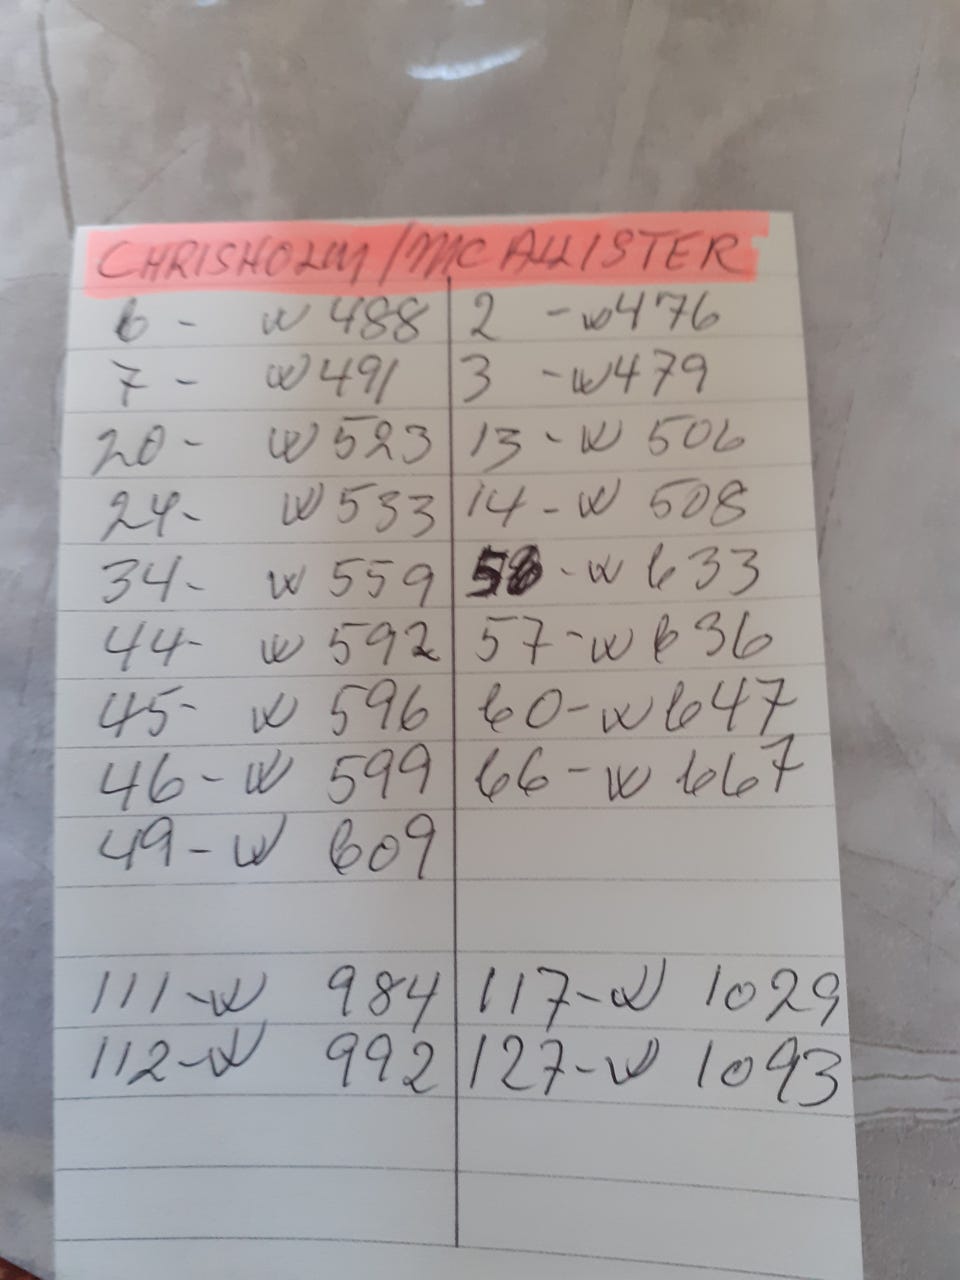 CHRISHOLM/MCALLISTER
6 - W 488 2 - W476
7 - W 491 3 - W479
20 - W 523 13 - W 506
24 - W 533 14 - W 508
34 - W 559 - W 633
44 - W 592 57 - W 636
45 - W 596 60 - W 647
46 - W 599 66 - W 667
49 - W 609
111 - W 984 117 - W 1029
112 - W 992 127 - W 1093